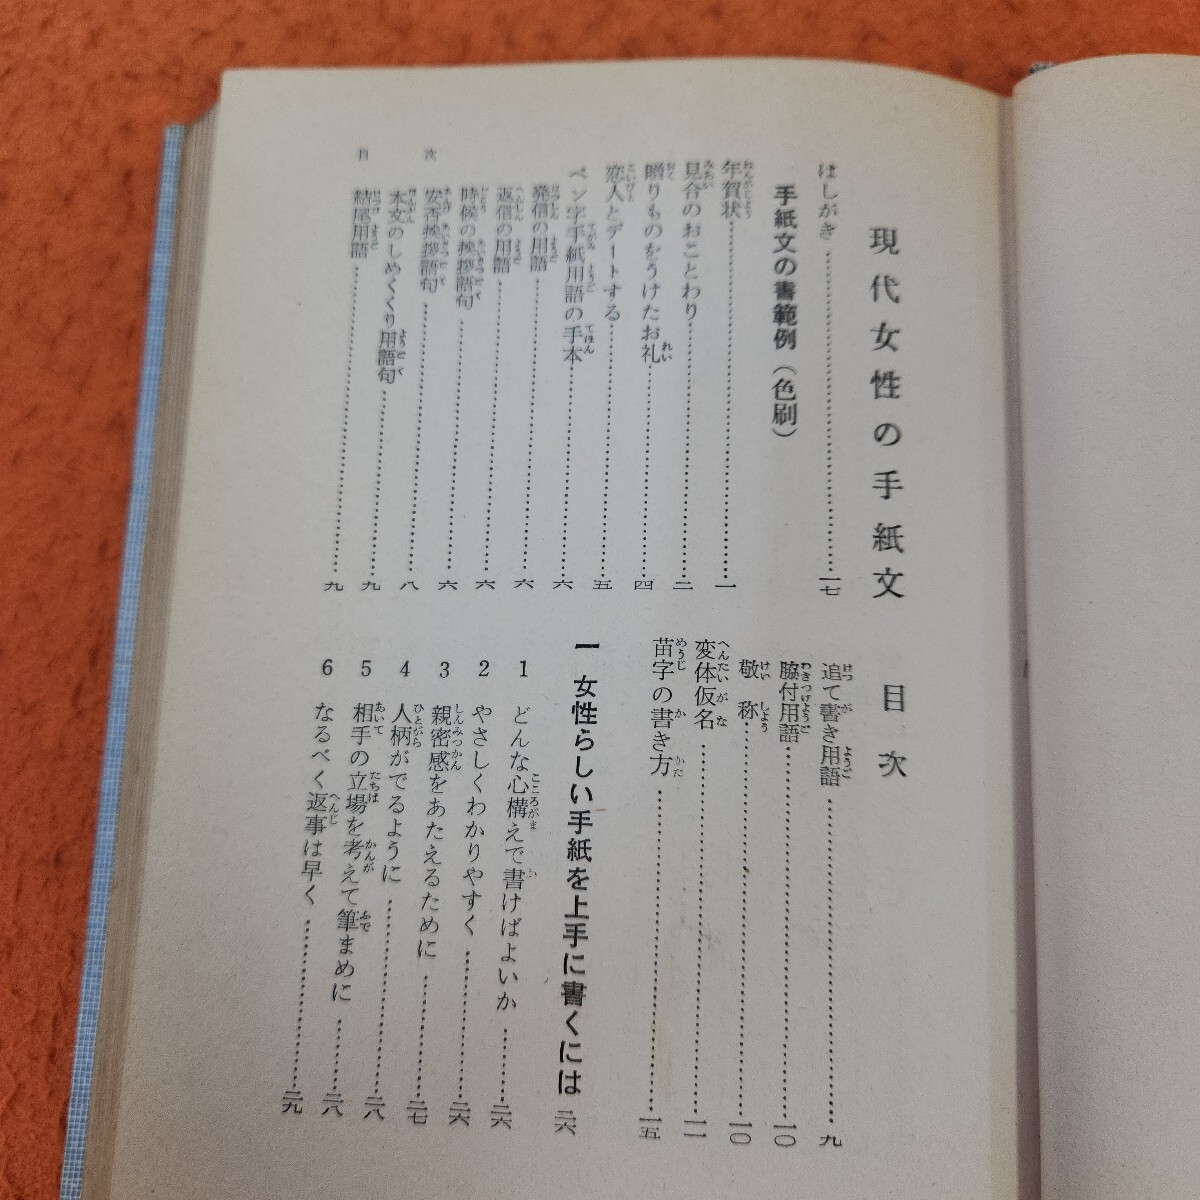 現代女性の手紙文 目次
はしがき……一七
手紙文の書範例（色刷）
年賀状……一
見合のおことわり……二
贈りものをうけたお礼……四
恋人とデートする……五
ペン字手紙用語の手本……六
発信の用語……六
返信の用語……六
時候の挨拶語句……六
安否挨拶語句……八
本文のしめくくり用語句……九
結尾用語……九
追て書き用語……九
脇付用語……一〇
敬称……一〇
変体仮名……一一
苗字の書き方……一五
一 女性らしい手紙を上手に書くには 二六
1 どんな心構えで書けばよいか……二六
2 やさしくわかりやすく……二六
3 親密感をあたえるために……二七
4 人柄がでるように……二八
5 相手の立場を考えて筆まめに……二八
6 なるべく返事は早く……二九
目次